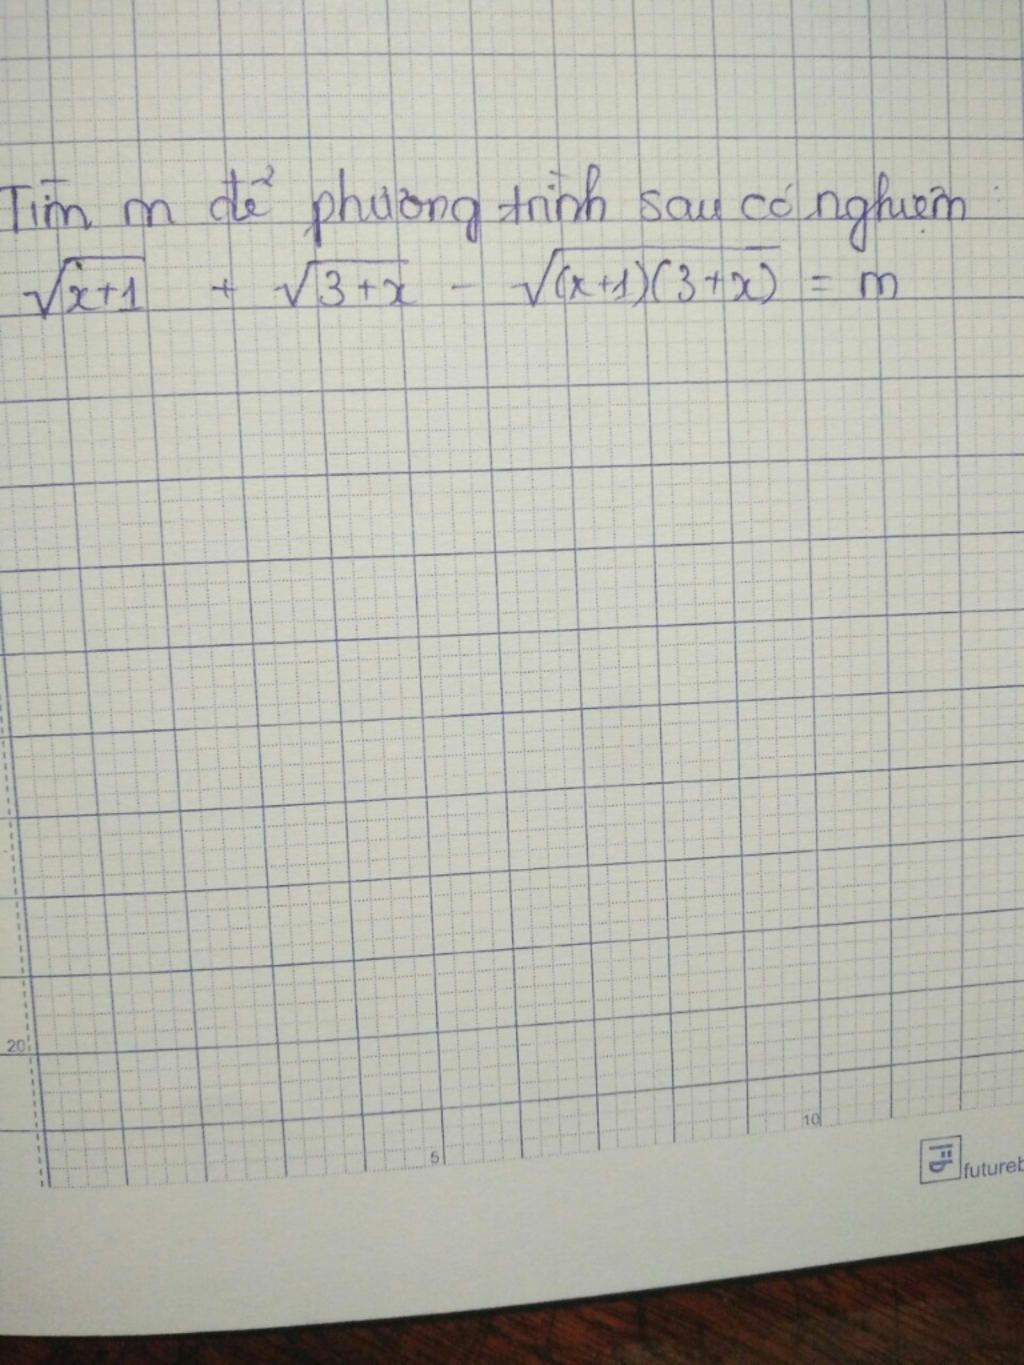 Tìm m để phương trình sau có nghiệm :
√x+1 + √3+x - √(x+1)(3+x) = m
20
5
10